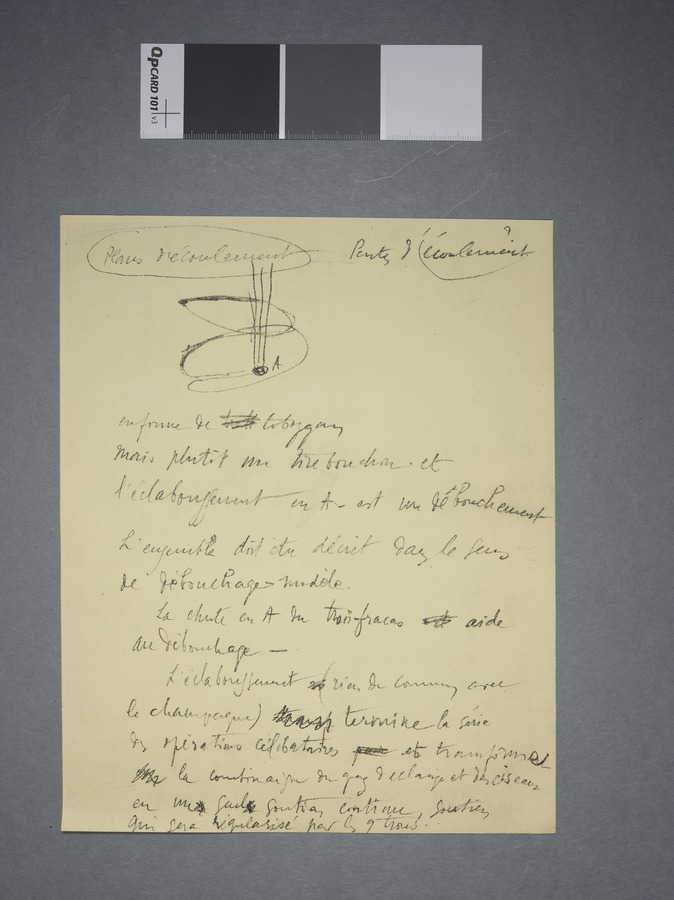 QPCARD 101 v3
Plans d'écoulement Pentes d'écoulement ?
A
en forme de toboggan
mais plutôt un tire bouchon. et
l'éclaboussement en A - est un débouchement
L'ensemble doit être décrit dans le sens
de débouchage-modèle.
La chute en A du trois-fracas aide
au débouchage —
L'éclaboussement (rien de commun avec
le champagne) termine la série
des opérations célibataires et transforme
la combinaison du gaz d'éclairage et des ciseaux
en une seule soutien continu, soutien
qui sera régularisé par les 9 trous.